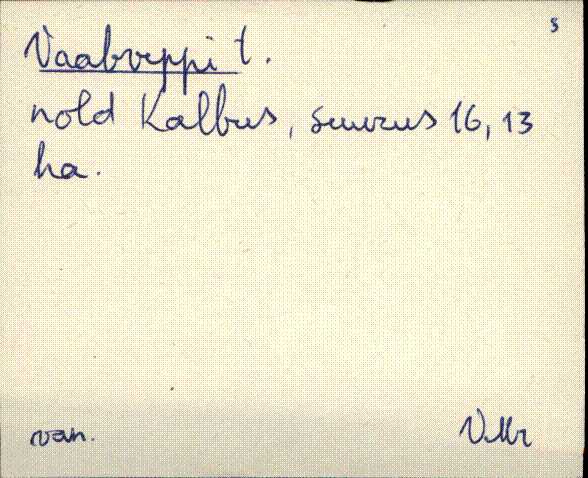 s
Vaabveppi t.
nold Kalbus, suurus 16,13
ha.
van. VMr